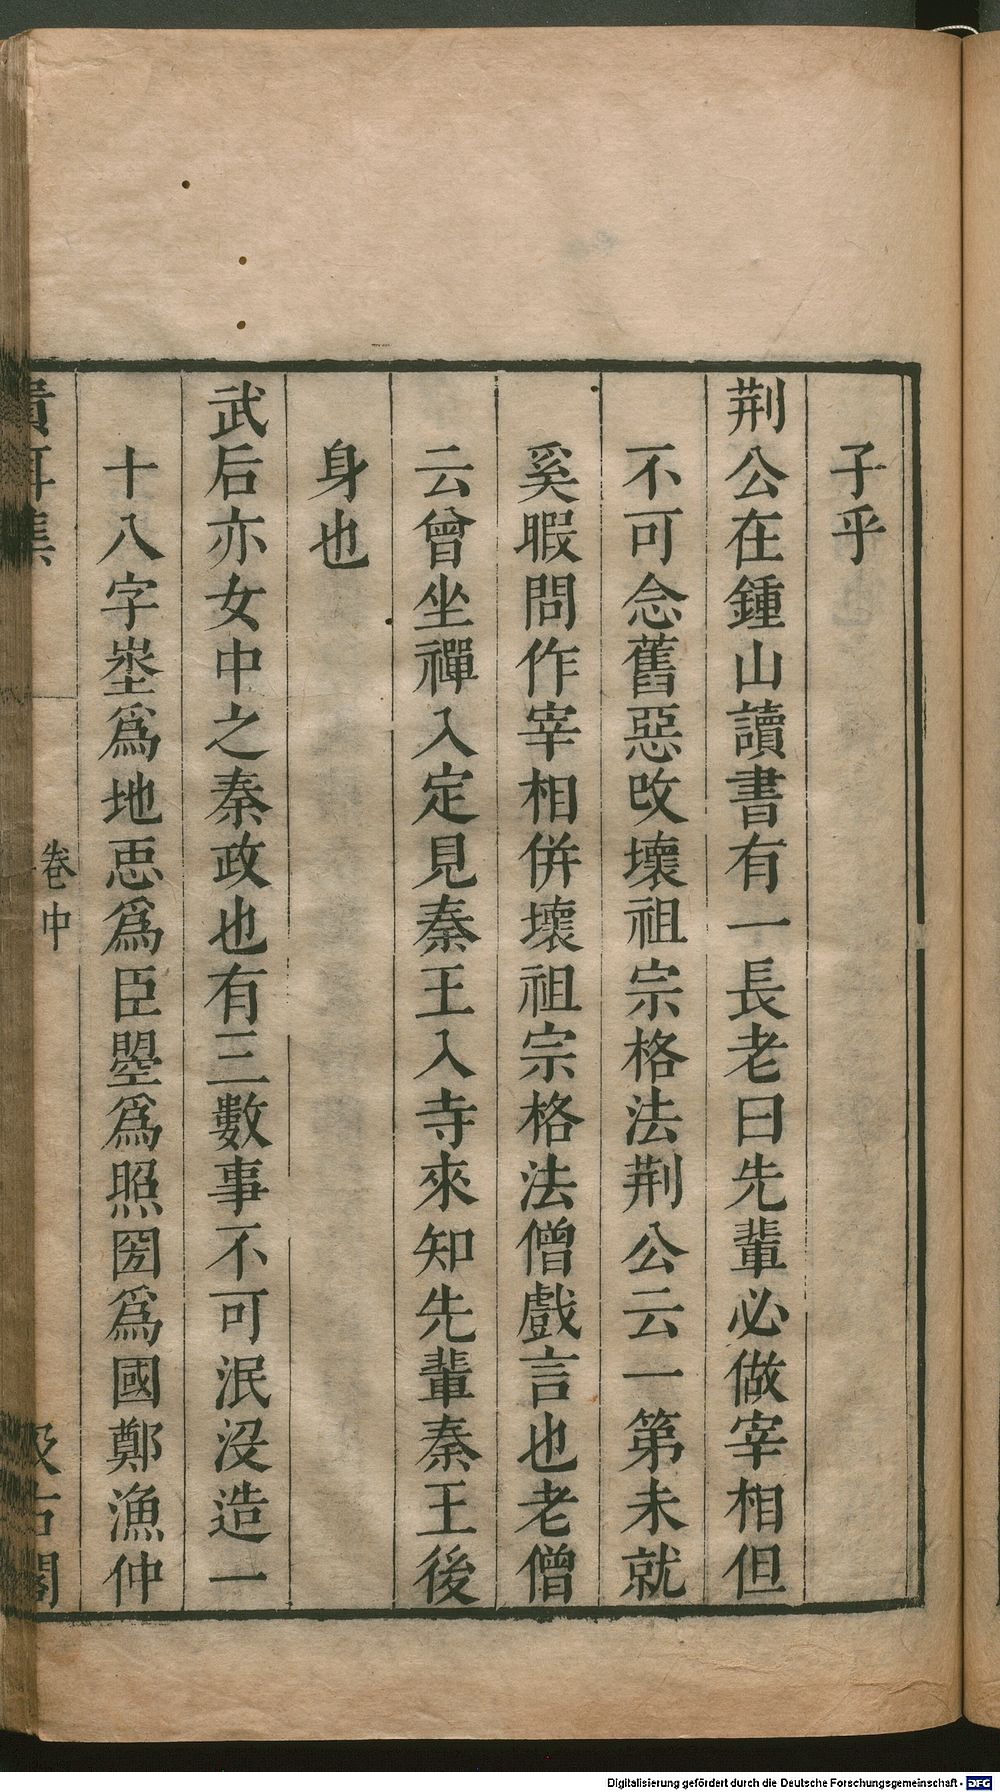 子乎
荆公在鍾山讀書有一長老曰先輩必做宰相但
不可念舊惡改壞祖宗格法荆公云一第未就
奚暇問作宰相併壞祖宗格法僧戲言也老僧
云曾坐禪入定見秦王入寺來知先輩秦王後
身也
武后亦女中之秦政也有三數事不可泯沒造一
十八字埊爲地𢘑爲臣曌爲照圀爲國鄭漁仲
貴耳集 卷中 汲古閣
Digitalisierung gefördert durch die Deutsche Forschungsgemeinschaft - DFG